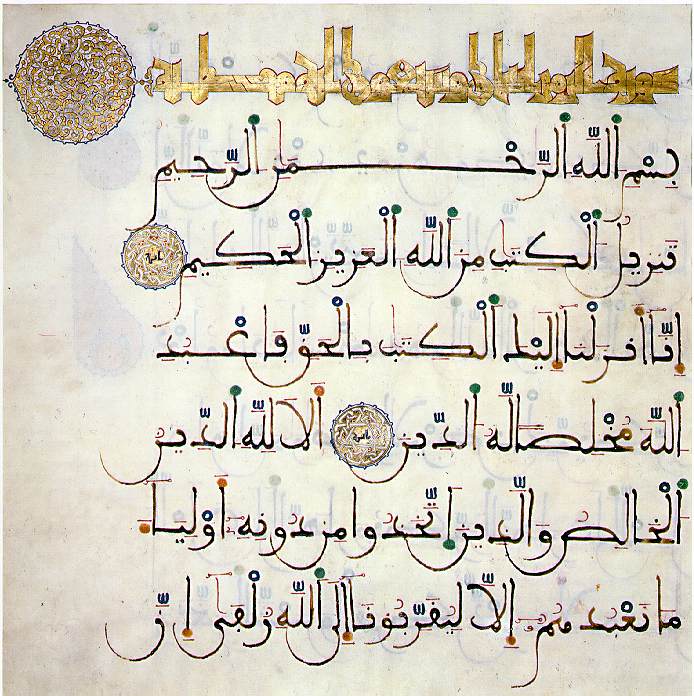 سورة الزمر
بِسْمِ اللَّهِ الرَّحْمَنِ الرَّحِيمِ
تَنزِيلُ الْكِتَبِ مِنَ اللَّهِ الْعَزِيزِ الْحَكِيمِ
إِنَّا أَنزَلْنَا إِلَيْكَ الْكِتَبَ بِالْحَقِّ فَاعْبُدِ
اللَّهَ مُخْلِصًا لَّهُ الدِّينَ أَلَا لِلَّهِ الدِّينُ
الْخَالِصُ وَالَّذِينَ اتَّخَذُوا مِن دُونِهِ أَوْلِيَاءَ
مَا نَعْبُدُهُمْ إِلَّا لِيُقَرِّبُونَا إِلَى اللَّهِ زُلْفَى إِنَّ